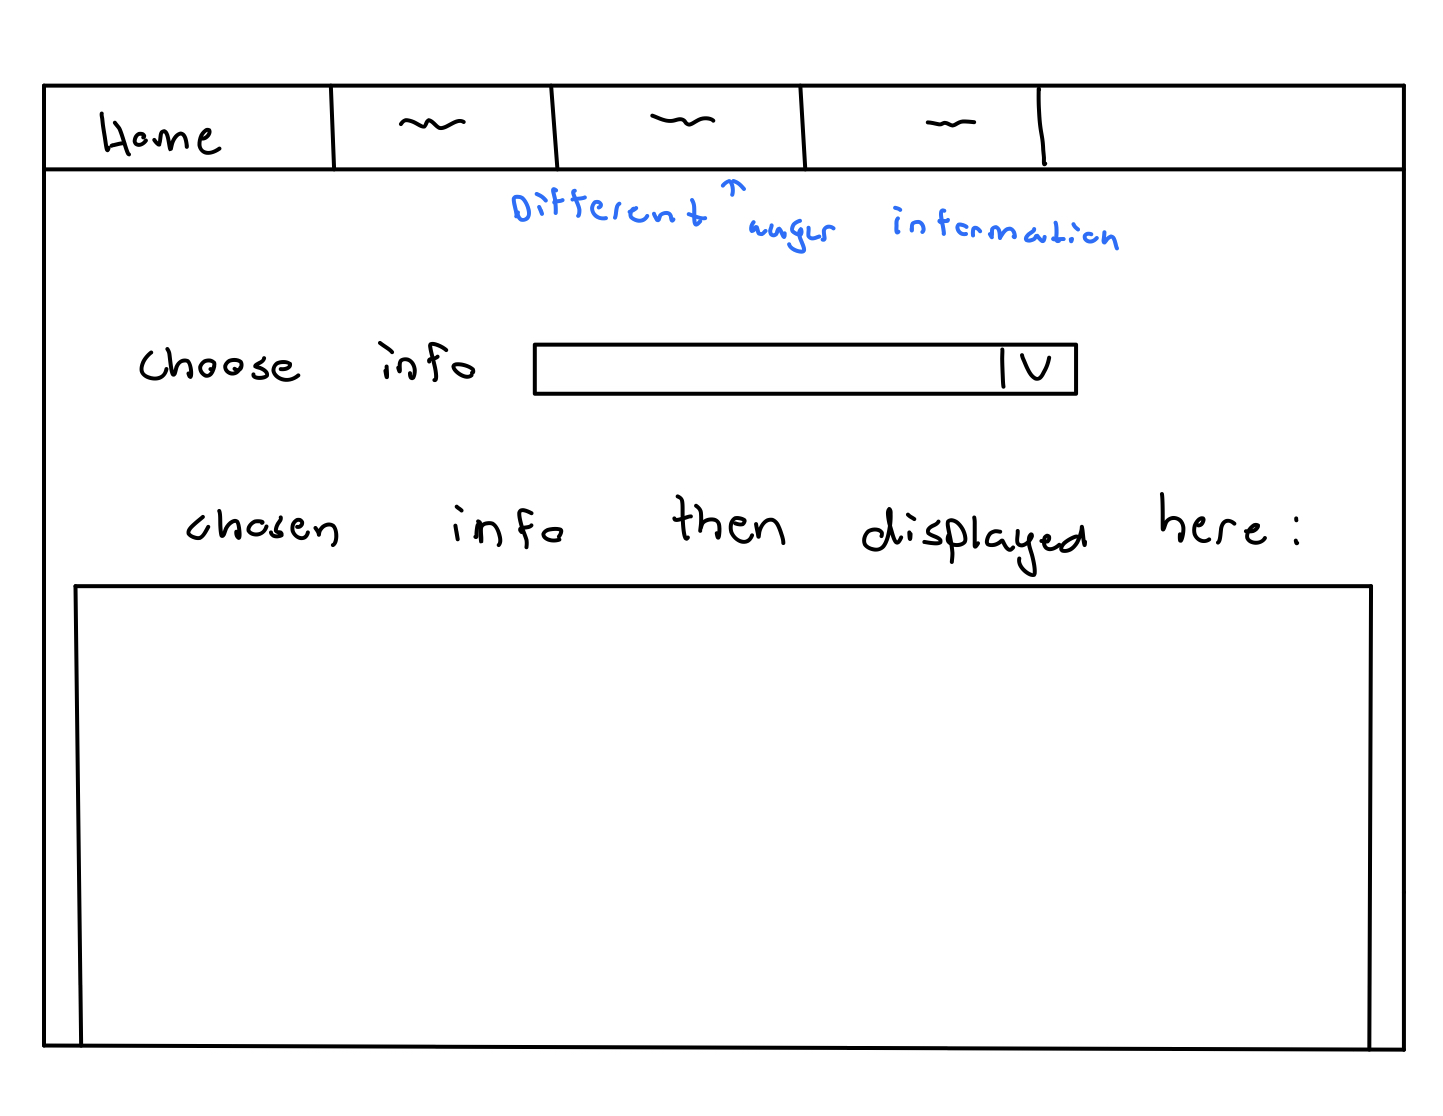 Home
Different information
Choose info
chosen info then displayed here: